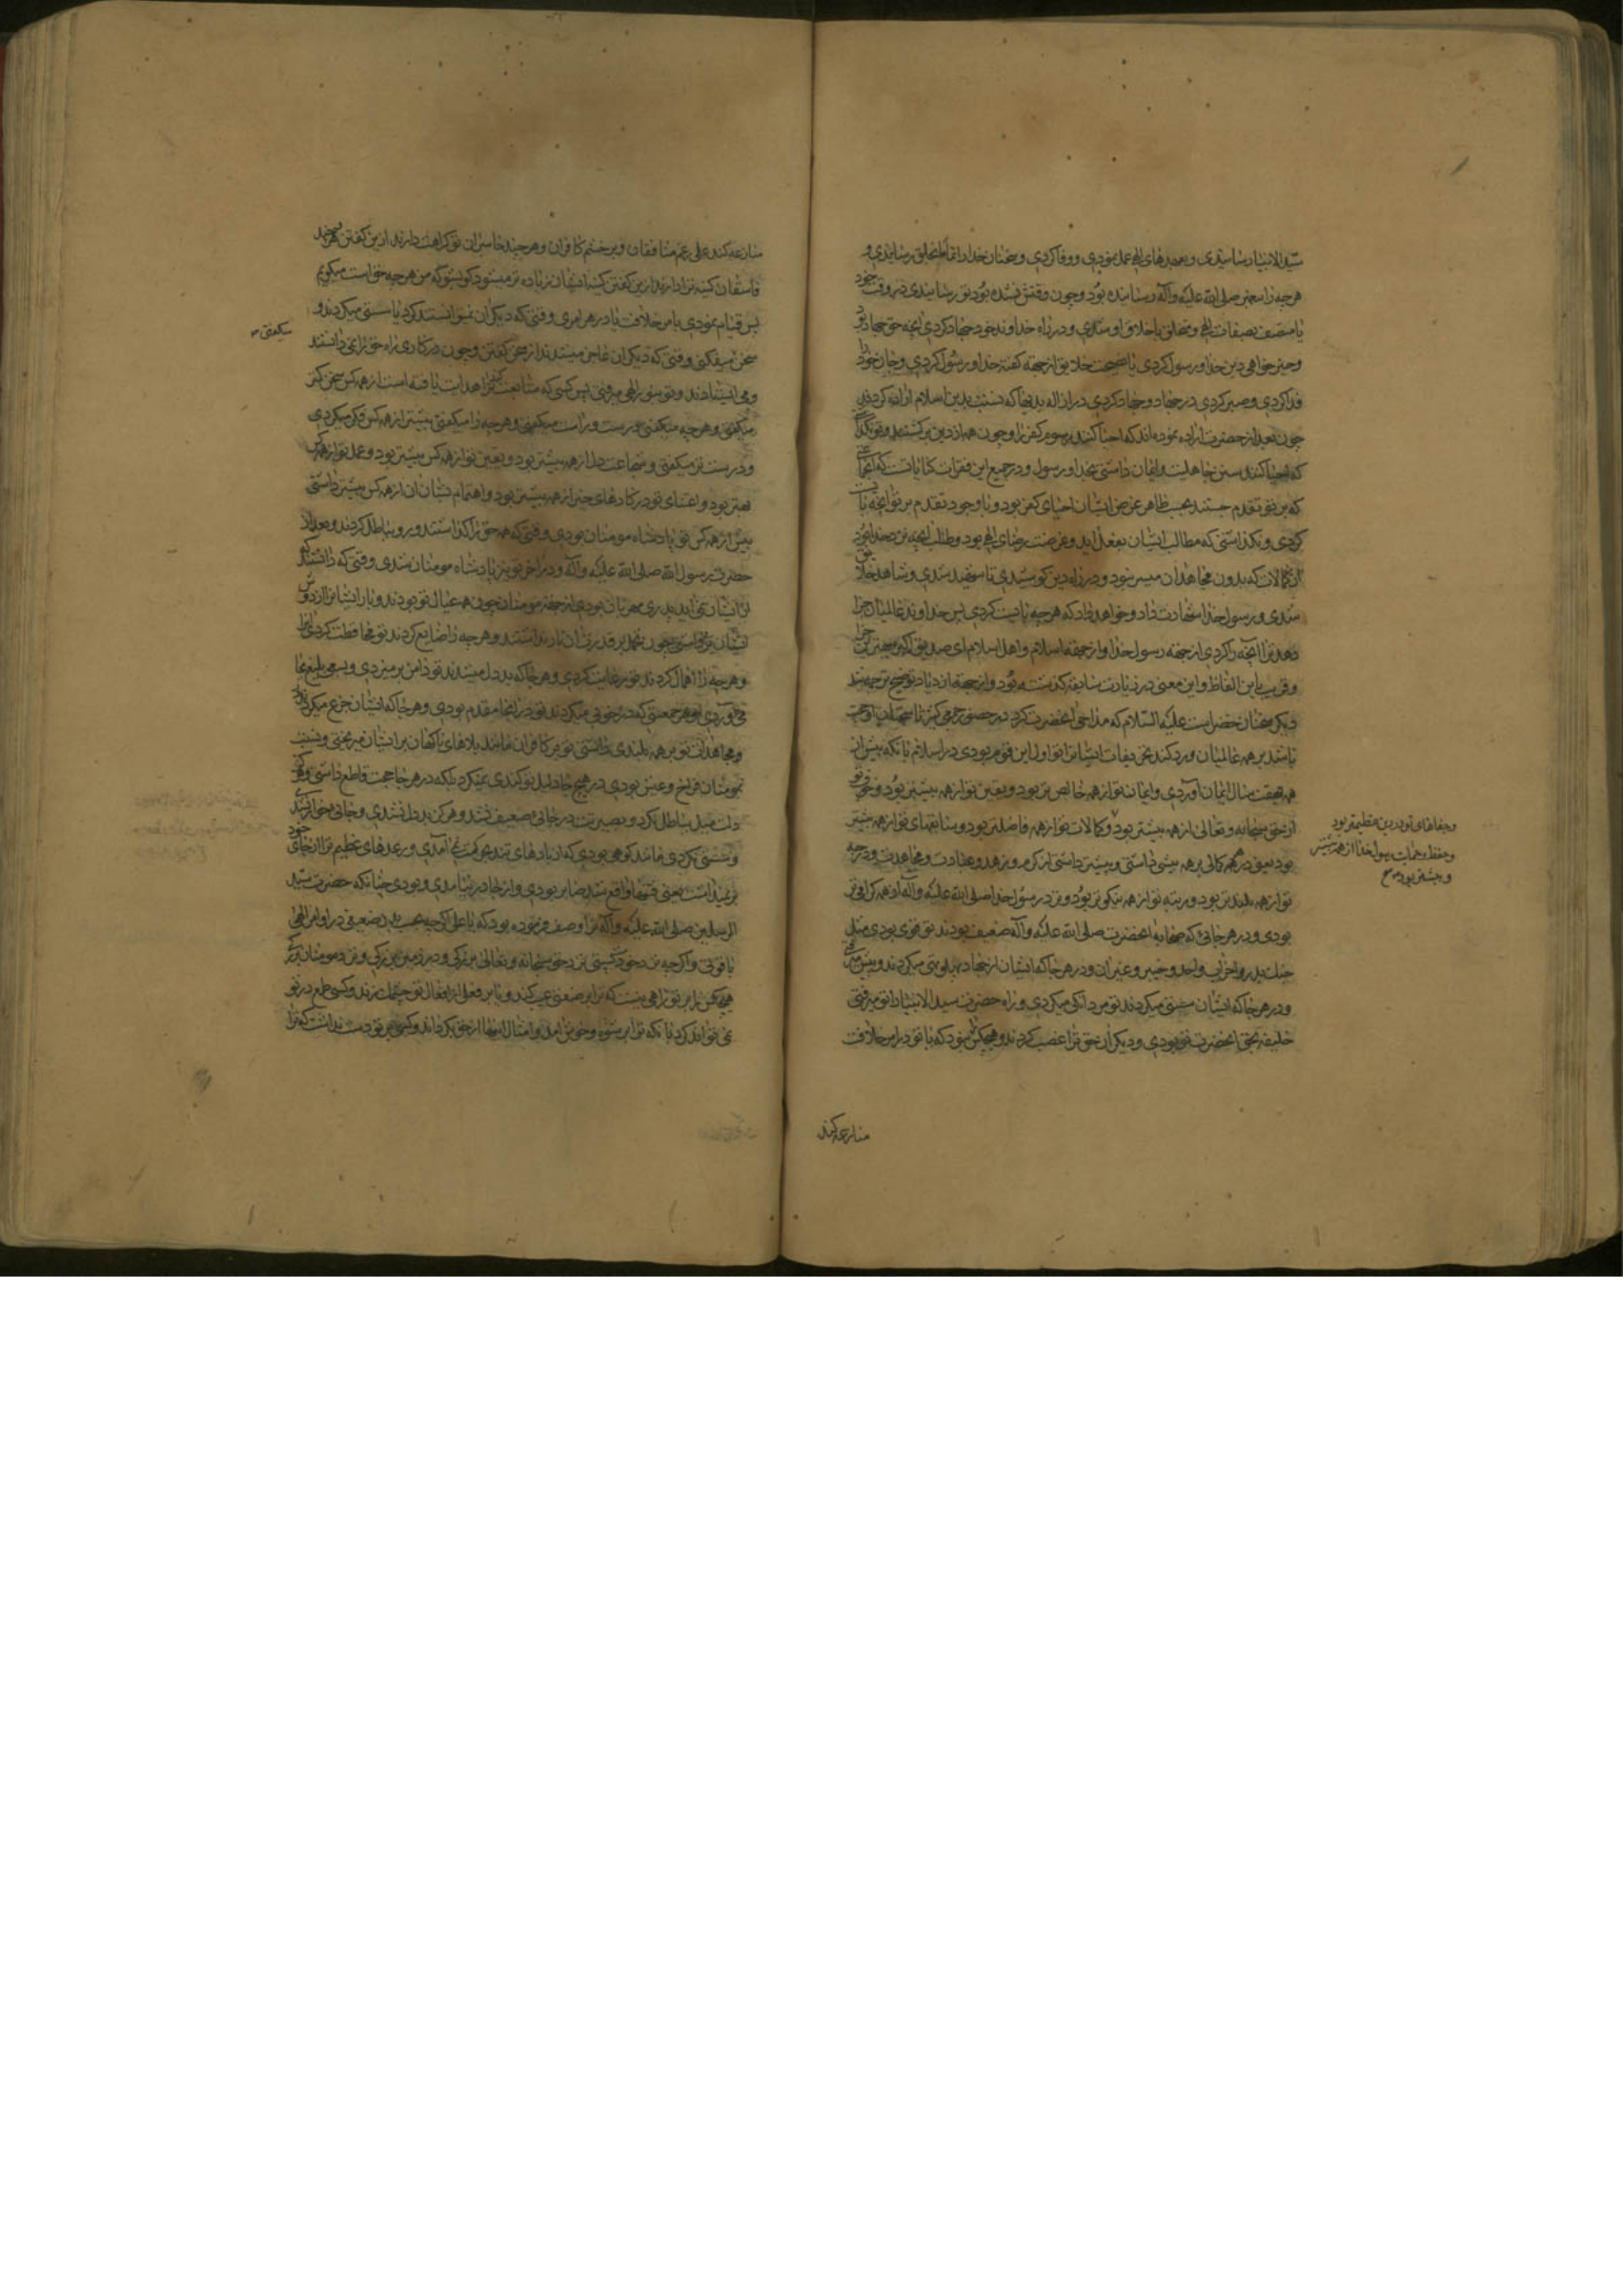 سیدالانبیا رسانیدی و بعهدهای الهی عمل نمودی و وفا کردی و سخنان خدا را تماما بخلق رسانیدی و
هرچه را پیغمبر صلی الله علیه وآله رسانیده بود و چون وقتش نشده بود تو رسانیدی در وقت خود
یا متصف بصفات الهی و متخلق باخلاق او شدی و در راه خداوند خود جهاد کردی آنچه حق جهاد بود
و خیرخواهی دین خدا و رسول کردی یا نصیحت خلایق از جهة گفته خدا و رسول کردی و جان خود را
فدا کردی و صبر کردی در جهاد و جهاد کردی در ازاله بدیها که نسبت بدین اسلام اراده کردند
چون بعد از حضرت اراده نموده اند که احیا کنند رسوم کفر را و چون همه از دین برکشتند و تو نکذاشتی
که احیا کنند سنن جاهلیت و ایمان داشتی بخدا و رسول و در جمیع این فقرات کنایاتست که آنها
که بر تو تقدم جستند بحسب ظاهر غرض ایشان احیای کفر بود و با وجود تقدم بر تو آنچه بایست
کردی و نکذاشتی که مطالب ایشان بفعل اید و غرضت رضای الهی بود و طلب آنچه نزد خدا بود
از کمالات که بدون مجاهدان میسر نبود و در راه دین کوشیدی تا شهید شدی و شاهد خلایق
شدی و رسول خدا شهادت داد و خواهد داد که هرچه بایست کردی پس خداوند عالمیان جزا
دهد ترا آنچه را کردی از جهة رسول خدا و از جهة اسلام و اهل اسلام ای صدیق اکبر بهترین جزا
و قریب باین الفاظ و این معنی در زیارت سابقه کذشته بود و از جهة ازدیاد توضیح ترجمه شد
دیکر سخنان خضر است علیه السلام که مداحی آنحضرت کرد در حضور جمعی کثیر تا سبب
باشد بر همه عالمیان و رد کند تحریفات ایشانرا تو اول این قوم بودی در اسلام بآنکه پیش از
همه هفت سال ایمان آوردی و ایمان تو از همه خالص تر بود و یقین تو از همه بیشتر بود و خوف تو
از حق سبحانه و تعالی از همه بیشتر بود و کمالات تو از همه فاضلتر بود و سابقهای تو از همه بیشتر
بود یعنی در همه کمالی بر همه پیشی داشتی و بیشتر داشتی از کرم و زهد و عبادت و مجاهدت و درجه
تو از همه بلندتر بود و رتبه تو از همه نیکوتر بود و نزد رسول خدا صلی الله علیه وآله از همه کرامی تر
بودی و در هر جائی که صحابه آنحضرت صلی الله علیه وآله ضعیف بودند تو قوی بودی مثل
جنک بدر و احزاب و احد و خیبر و غیر آن و در هر جا که ایشان از جهاد پهلوتهی میکردند و پیش میرفتی
و در هر جا که ایشان سستی میکردند تو مردانکی میکردی و راه حضرت سیدالانبیا را تو میرفتی
خلیفه بحق آنحضرت تو بودی و دیکران حق ترا غصب کردند و هیچکس نبود که با تو در امر خلافت
منازعه کند
و جفاهای تو در دین عظیمتر بود
و حفظ و حمایت رسول خدا از همه بیشتر
و بیشتر بود صح
منازعه کند علی رغم منافقان و بر خشم کافران و هرچند حاسدان تو کراهت دارند از این کفتن هرچند
فاسقان کینه ترا دارند از این کفتن کینه ایشان زیاده تر میشود کو بشو که من هرچه حق است میکویم
پس قیام نمودی بامر خلافت یا در هر امری وقتی که دیکران نمیتوانستند کرد یا سستی میکردند و
سخن میکفتی وقتی که دیکران عاجز میشدند از سخن کفتن و چون در کاری راه حق را نمی دانستند
و می ایستادند و تو بنور الهی میرفتی پس کسی که متابعت کند ترا هدایت یافته است از همه کس سخن کمتر
میکفتی و هرچه میکفتی درست و راست میکفتی و هرچه را میکفتی بیشتر از همه کس فکر میکردی
و درست تر میکفتی و شجاعت دل از همه بیشتر بود و یقین تو از همه کس بیشتر بود و عمل تو از همه کس
بهتر بود و اعتنای تو در کارهای خیر از همه بیشتر بود و اهتمام تو بشان آن از همه کس بیشتر داشتی
پیش از همه کس تو پادشاه مومنان بودی وقتی که همه حق را کذاشتند و رو بباطل کردند و بعد از
حضرت رسول الله صلی الله علیه وآله و در آخر تو نیز پادشاه مومنان شدی وقتی که دانستند که
از ایشان نمی اید پدری مهربان بودی از جهة مومنان چون همه عیال تو بودند و بار ایشانرا از دوش
ایشان برداشتی چون تحمل بر قدرتان بار نداشتند و هرچه را ضایع کردند تو محافظت کردی آنرا
و هرچه را اهمال کردند تو رعایت کردی و هر جا که بد دل میشدند تو دامن بر میزدی و سعی بلیغ بجا
می آوردی و هر جمعیتی که در خوبی میکردند تو در آنجا مقدم بودی و هر جا که ایشان جزع میکردند
و مجاهدان تو بر همه بلندی داشتی تو بر کافران مانند بلاهای ناکهان بر ایشان میریختی و نسبت
بمومنان فراخ و عیش بودی در هیچ جا دلیل تو کندی نمیکرد بلکه در هر جا حجت قاطع داشتی و هرگز
دلت میل بباطل نکرد و بصیرتت در جائی ضعیف نشد و هرگز بد دل نشدی و خیانت
و سستی نکردی مانند کوهی بودی که از بادهای تند بحرکت نمی آمدی و رعدهای عظیم ترا از جای خود
بر نمیداشت یعنی فتنها واقع شد صابر بودی و از جا در نیامدی و بودی چنانکه حضرت سید
المرسلین صلی الله علیه وآله ترا وصف فرموده بود که یا علی اکرچه بحسب بدن ضعیفی در اوامر الهی
با قوتی و اکرچه نزد خود پستی نزد حق سبحانه و تعالی بزرکی و در زمین بزرکی و نزد مومنان بزرکی
هیچکس را بر تو راهی نیست که ترا بر صفتی عیب کند و یا بر فعلی از افعال تو چشمک زند و کسی طمع در تو
نمی تواند کرد بآنکه ترا برشوه و خوش آمد و امثال اینها از حق بکرداند و کسی بر تو دست نداشت که ترا
میکفتی صح